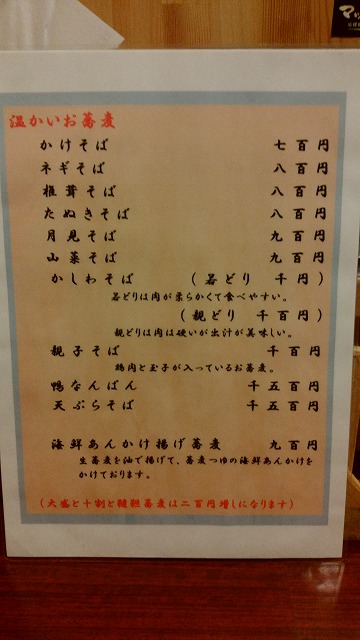 温かいお蕎麦
かけそば 七百円
ネギそば 八百円
椎茸そば 八百円
たぬきそば 八百円
月見そば 九百円
山菜そば 九百円
かしわそば (若どり 千円)
若どりは肉が柔らかくて食べやすい。
(親どり 千百円)
親どりは肉は硬いが出汁が美味しい。
親子そば 千百円
鶏肉と玉子が入っているお蕎麦。
鴨なんばん 千五百円
天ぷらそば 千五百円
海鮮あんかけ揚げ蕎麦 九百円
生蕎麦を油で揚げて、蕎麦つゆの海鮮あんかけを
かけております。
(大盛と十割と韃靼蕎麦は二百円増しになります)